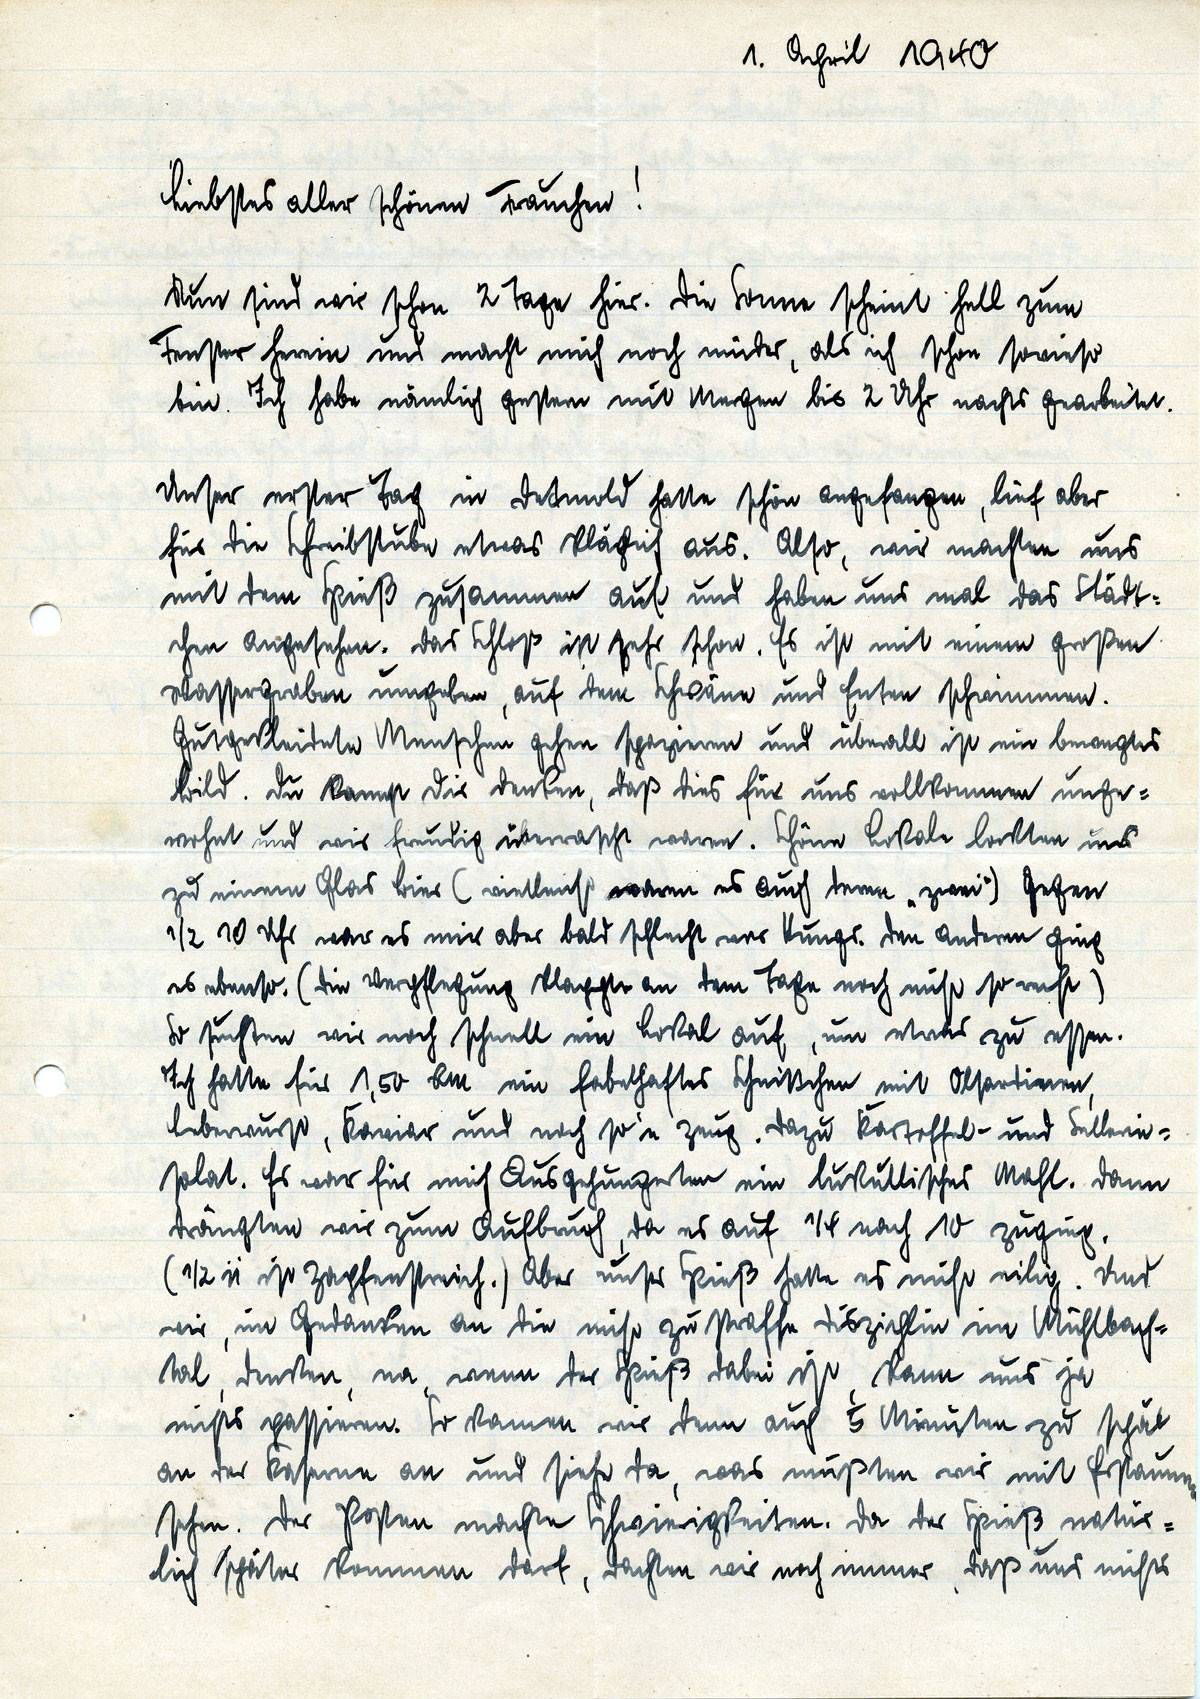 1. April 1940
Liebstes aller schönen Frauchen!
Nun sind wir schon 2 Tage hier. Die Sonne scheint hell zum
Fenster herein und macht mich noch müder, als ich schon sowieso
bin. Ich habe nämlich gestern mit Mergen bis 2 Uhr nachts gearbeitet.
Unser erster Tag in Detmold hatte schön angefangen, lief aber
für die Schreibstube etwas kläglich aus. Also, wir machten uns
mit dem Spieß zusammen auf und haben uns mal das Städt=
chen angesehen. Das Schloß ist sehr schön. Es ist mit einem großen
Wassergraben umgeben, auf dem Schwäne und Enten schwimmen.
Gutgekleidete Menschen gehen spazieren und überall ist ein bewegtes
Bild. Du kannst Dir denken, daß dies für uns vollkommen unge=
wohnt und wir freudig überrascht waren. Schöne Lokale lockten uns
zu einem Glas Bier (vielleicht waren es auch deren „zwei“) Gegen
1/2 10 Uhr war es mir aber bald schlecht vor Hunger. Den anderen ging
es ebenso. (Die Verpflegung klappte an dem Tage noch nicht so recht)
So suchten wir noch schnell ein Lokal auf, um etwas zu essen.
Ich hatte für 1,50 RM ein fabelhaftes Schnittchen mit Ölsardinen,
Leberwurst, Kaviar und noch so'n Zeug. Dazu Kartoffel- und Sellerie=
salat. Es war für mich Ausgehungerten ein lukullisches Mahl. Dann
drängten wir zum Aufbruch, da es auf 1/4 nach 10 zuging.
(1/2 11 ist Zapfenstreich.) Aber unser Spieß hatte es nicht eilig. Und
wir, im Gedanken an die nicht zu straffe Disziplin im Mühlbach=
tal, denken, na, wenn der Spieß dabei ist, kann uns ja
nichts passieren. So kamen wir denn auch 5 Minuten zu spät
an der Kaserne an und siehe da, was mußten wir mit Erstaunen
sehen. Der Posten machte Schwierigkeiten. Da der Spieß natür=
lich später kommen darf, dachten wir noch immer, daß uns nichts